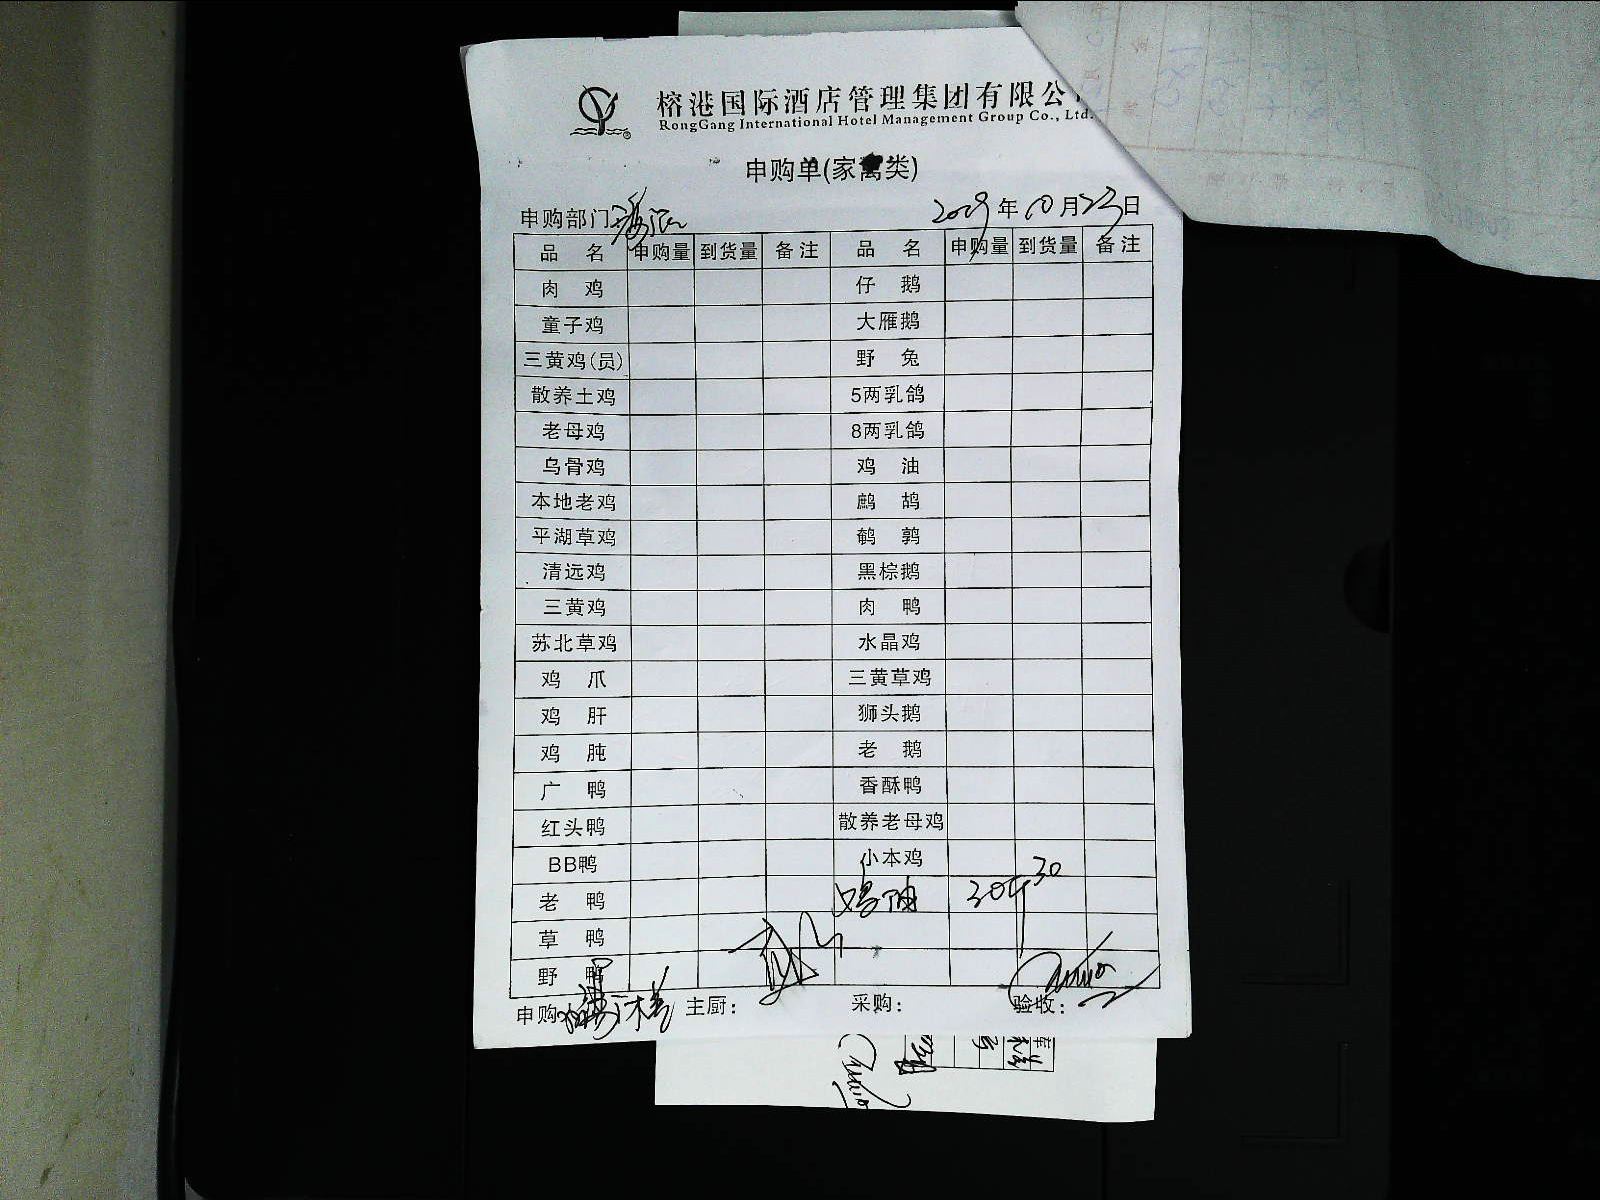 榕港国际酒店管理集团有限公
RongGang International Hotel Management Group Co., Ltd.
申购单(家禽类)
申购部门: 2019年10月23日
品 名 申购量 到货量 备注 品 名 申购量 到货量 备注
肉 鸡 仔 鹅
童子鸡 大雁鹅
三黄鸡(员) 野 兔
散养土鸡 5两乳鸽
老母鸡 8两乳鸽
乌骨鸡 鸡 油
本地老鸡 鹧 鸪
平湖草鸡 鹌 鹑
清远鸡 黑棕鹅
三黄鸡 肉 鸭
苏北草鸡 水晶鸡
鸡 爪 三黄草鸡
鸡 肝 狮头鹅
鸡 肫 老 鹅
广 鸭 香酥鸭
红头鸭 散养老母鸡
BB鸭 小本鸡
老 鸭 鸡油 30斤 30
草 鸭
野 鸭
申购 主厨: 采购: 验收: